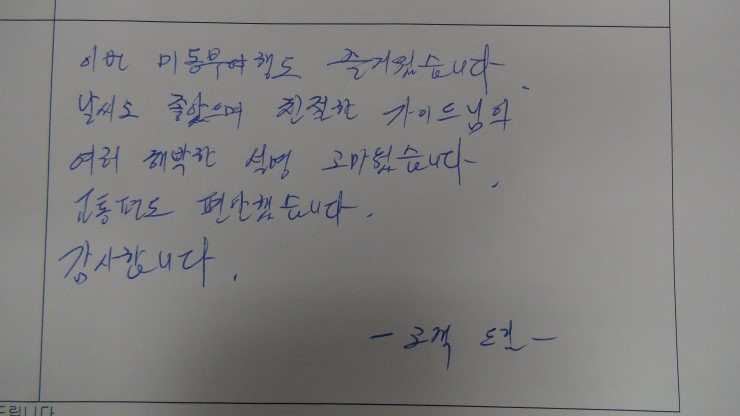 이번 미동부여행도 즐거웠습니다.
날씨도 좋았으며 친절한 가이드님의
여러 해박한 설명 고마웠습니다.
교통편도 편안했습니다.
감사합니다.
드립니다